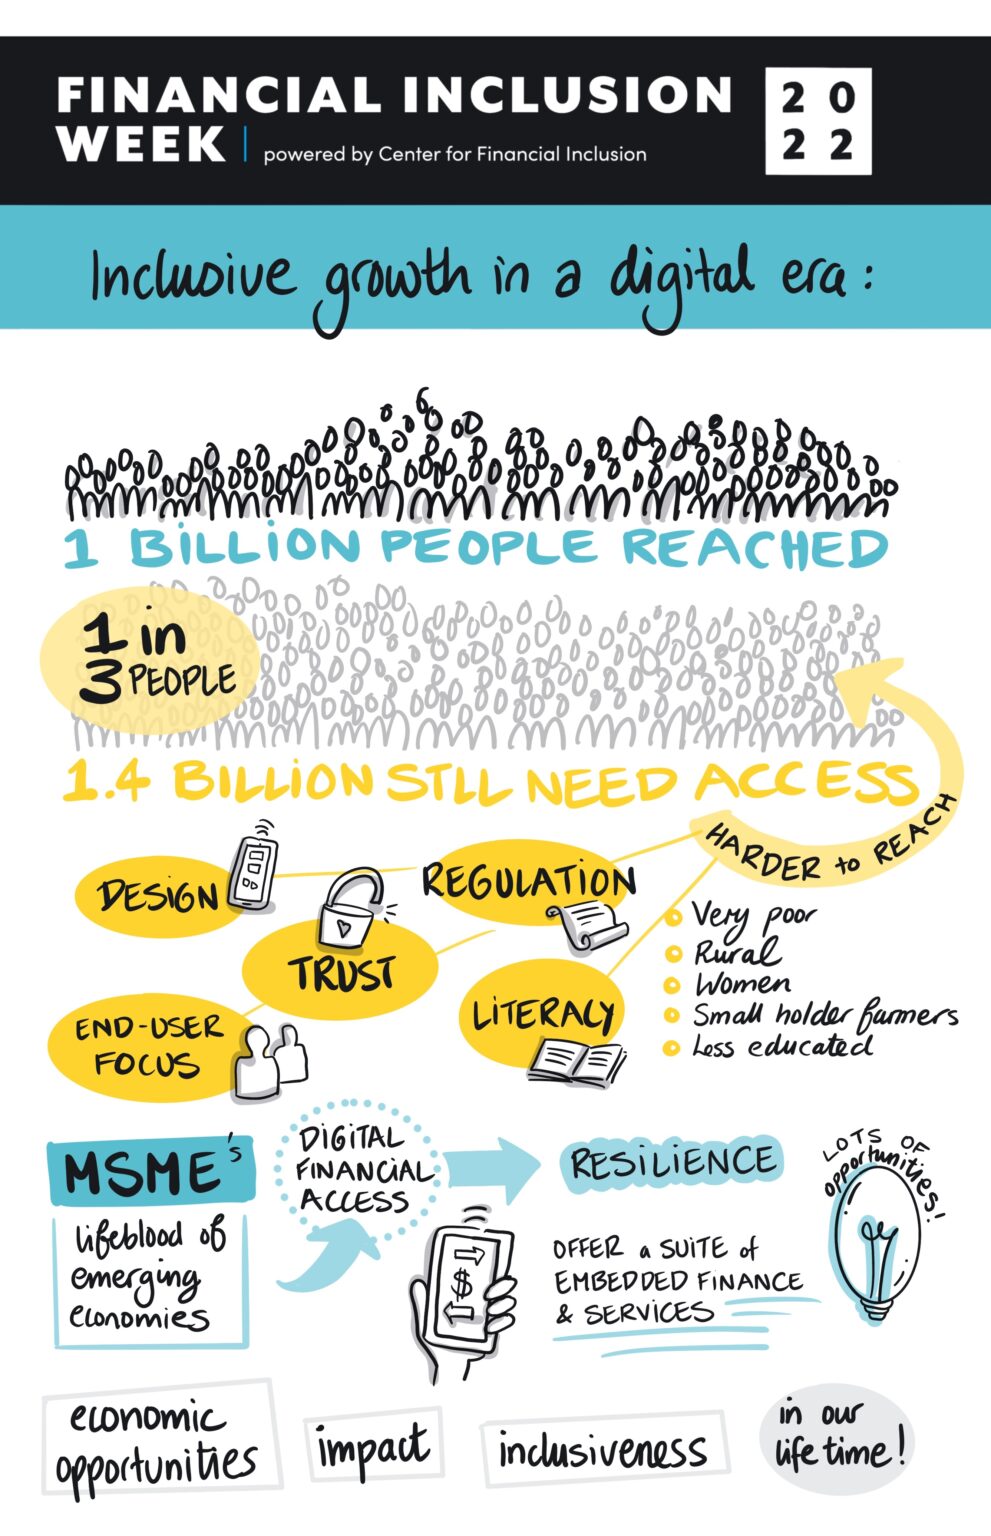 FINANCIAL INCLUSION
WEEK | powered by Center for Financial Inclusion
2 0
2 2
Inclusive growth in a digital era:
1 BILLION PEOPLE REACHED
1 in
3 PEOPLE
1.4 BILLION STLL NEED ACCESS
HARDER to REACH
DESIGN
REGULATION
TRUST
LITERACY
END-USER
FOCUS
Very poor
Rural
Women
Small holder farmers
Less educated
MSME's
lifeblood of
emerging
economies
DIGITAL
FINANCIAL
ACCESS
$
RESILIENCE
OFFER a SUITE of
EMBEDDED FINANCE
& SERVICES
LOTS OF
opportunities!
economic
opportunities
impact
inclusiveness
in our
life time!